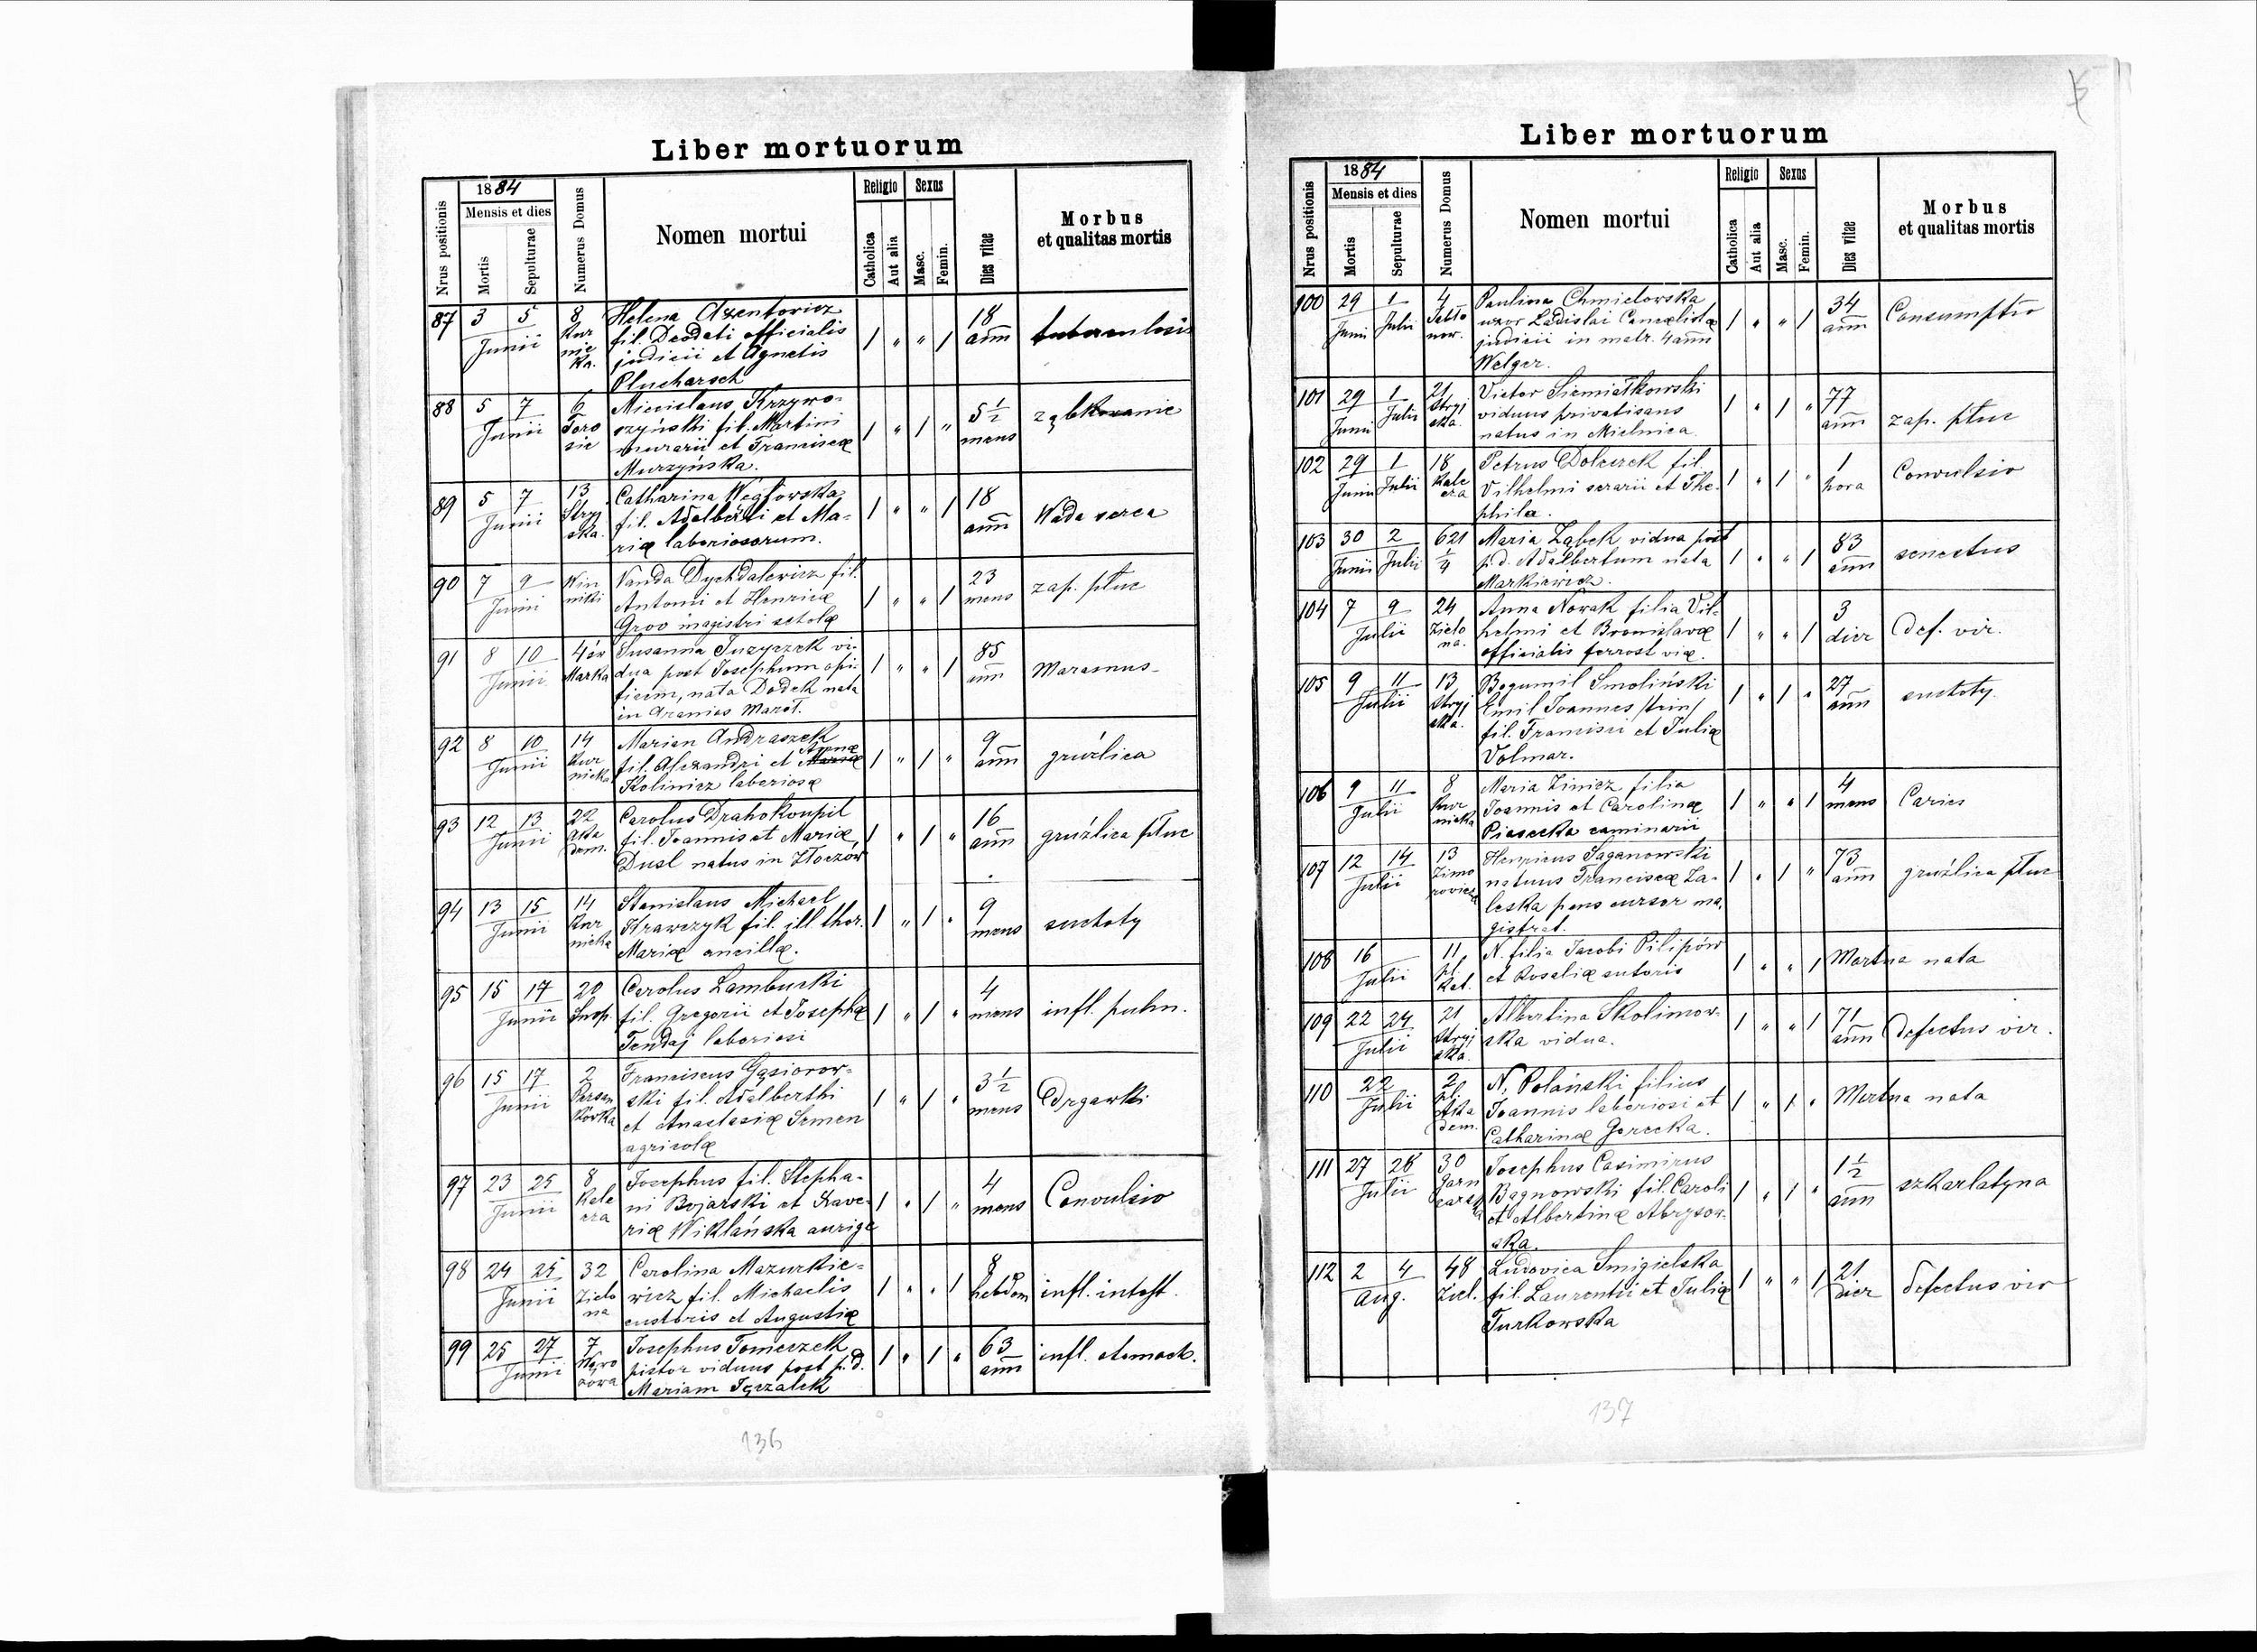 Liber mortuorum
Nrus positionis
1884
Mensis et dies
Mortis
Sepulturae
Numerus Domus
Nomen mortui
Religio
Catholica
Aut alia
Sexus
Masc.
Femin.
Dies vitae
Morbus
et qualitas mortis
87 3 5 Junii 8 Kur
nic
ka.
Helena Axentowicz
fil. Deodati officialis
judicii et Agnetis
Plucharsch
1 " " 1 18 ann tuberculosis
88 5 7 Junii 6
Toro
sie
Miecislaus Krzywo-
szyński fil. Martini
murarii et Franciscæ
Murzyńska.
1 " 1 " 5 1/2 mens ząbkowanie
89 5 7 Junii 13
Stryj
ska.
Catharina Węgłowska
fil. Adalberti et Ma-
riæ laboriosorum.
1 " " 1 18 ann Wada serca
90 7 9 Junii Win
niki
Vanda Dychdalewicz fil.
Antonii et Henricæ
Groo magistri scholæ
1 " " 1 23 mens zap. płuc
91 8 10 Junii
Marka
Susanna vi-
dua post Josephum opi-
ficem, nata Dodek nata
in
1 " " 1 85 ann Marasmus
92 8 10 Junii 14
Kur
nicka
Marian Andraszek
fil. Alexandri et Annæ
Skolimicz laboriosæ
1 " 1 " 9 ann gruźlica
93 12 13 Junii 22
Aka
dem.
Carolus Drahokoupil
fil. Joannis et Mariæ
Dusl natus in Złoczów
1 " 1 " 16 ann gruźlica płuc
94 13 15 Junii 14
Kur
nicka
Stanislaus Michael
Krawczyk fil. ill. thor.
Mariæ ancillæ.
1 " 1 " 9 mens suchoty
95 15 17 Junii 20
Snop.
Carolus Lamburski
fil. Gregorii et Josephæ
Tendaj laboriosi
1 " 1 " 4 mens infl. pulm.
96 15 17 Junii 2
Persen
kowka
Franciscus Gąsiorow-
ski fil. Adalberthi
et Anastasiæ Semen
agricolæ
1 " 1 " 3 1/2 mens Drgawki
97 23 25 Junii 8
Kale
cza
Josephus fil. Stepha-
ni Bojarski et Xave-
riæ Wiklańska aurigæ
1 " 1 " 4 mens Convulsio
98 24 25 Junii 32
Zielo
na
Carolina Mazurkie-
wicz fil. Michaelis
custoris et Augustiæ
1 " " 1 8 hebdom infl. intest.
99 25 27 Junii 7
Josephus Tomerzek
pistor viduus post p. d.
Mariam Tęczalek
1 " 1 " 63 ann infl. stomach.
136
Liber mortuorum
Nrus positionis
1884
Mensis et dies
Mortis
Sepulturae
Numerus Domus
Nomen mortui
Religio
Catholica
Aut alia
Sexus
Masc.
Femin.
Dies vitae
Morbus
et qualitas mortis
100 29 Junii 1 Julii 4
Jabło
now.
Paulina Chmielowska
uxor Ladislai Cancelistæ
judicii in matr. 4 ann
Welger.
1 " " 1 34 ann Consumptio
101 29 Junii 1 Julii 21
Stryj
ska.
Victor Siemiatkowski
viduus privatisans
natus in Mielnica
1 " 1 " 77 ann zap. płuc
102 29 Junii 1 Julii 18
Kale
cza
Petrus Dolczek fil.
Vilhelmi serarii et The-
phila.
1 " 1 " 1 hora Convulsio
103 30 Junii 2 Julii 621
1/4
Maria Ząbek vidua post
p. d. Adalbertum nata
Markiewicz.
1 " " 1 83 ann senectus
104 7 9 Julii 24
Zielo
na.
Anna Nowak filia Vil-
helmi et Bronislavæ
officialis ferrost viæ.
1 " " 1 3 dier Def. vir.
105 9 11 Julii 13
Stryj
ska.
Bogumil Smoliński
Emil Joannes /trin/
fil. Francisci et Juliæ
Volmar.
1 " 1 " 27 ann suchoty.
106 9 11 Julii 8
Kur
nicka
Maria Zinicz filia
Joannis et Carolinæ
Piasecka caminarii
1 " " 1 4 mens Caries
107 12 14 Julii 13
Zimo
rowicza
Henricus Saganowski
natuus Franciscæ Za-
leska pens cursor ma-
gistrat.
1 " 1 " 73 ann gruźlica płuc
108 16 Julii 11
pl.
Kat.
N. filia Jacobi Pilipów
et Rosaliæ sutoris
1 " " 1 Mortua nata
109 22 24 Julii 21
Stryj
ska.
Albertina Skolimow-
ska vidua.
1 " " 1 71 ann Defectus vir.
110 22 Julii 2
pl.
Aka
dem.
N. Polański filius
Joannis laboriosi et
Catharinæ Gorecka.
1 " 1 " Mortua nata
111 27 28 Julii 30
Garn
carska
Josephus Casimirus
Bagnowski fil. Caroli
et Albertinæ Abrysow-
ska.
1 " 1 " 1 1/2 ann szkarlatyna
112 2 4 Aug. 48
Ziel.
Ludovica Smigielska
fil. Laurentii et Juliæ
Turkowska
1 " " 1 21 dier Defectus vir
137